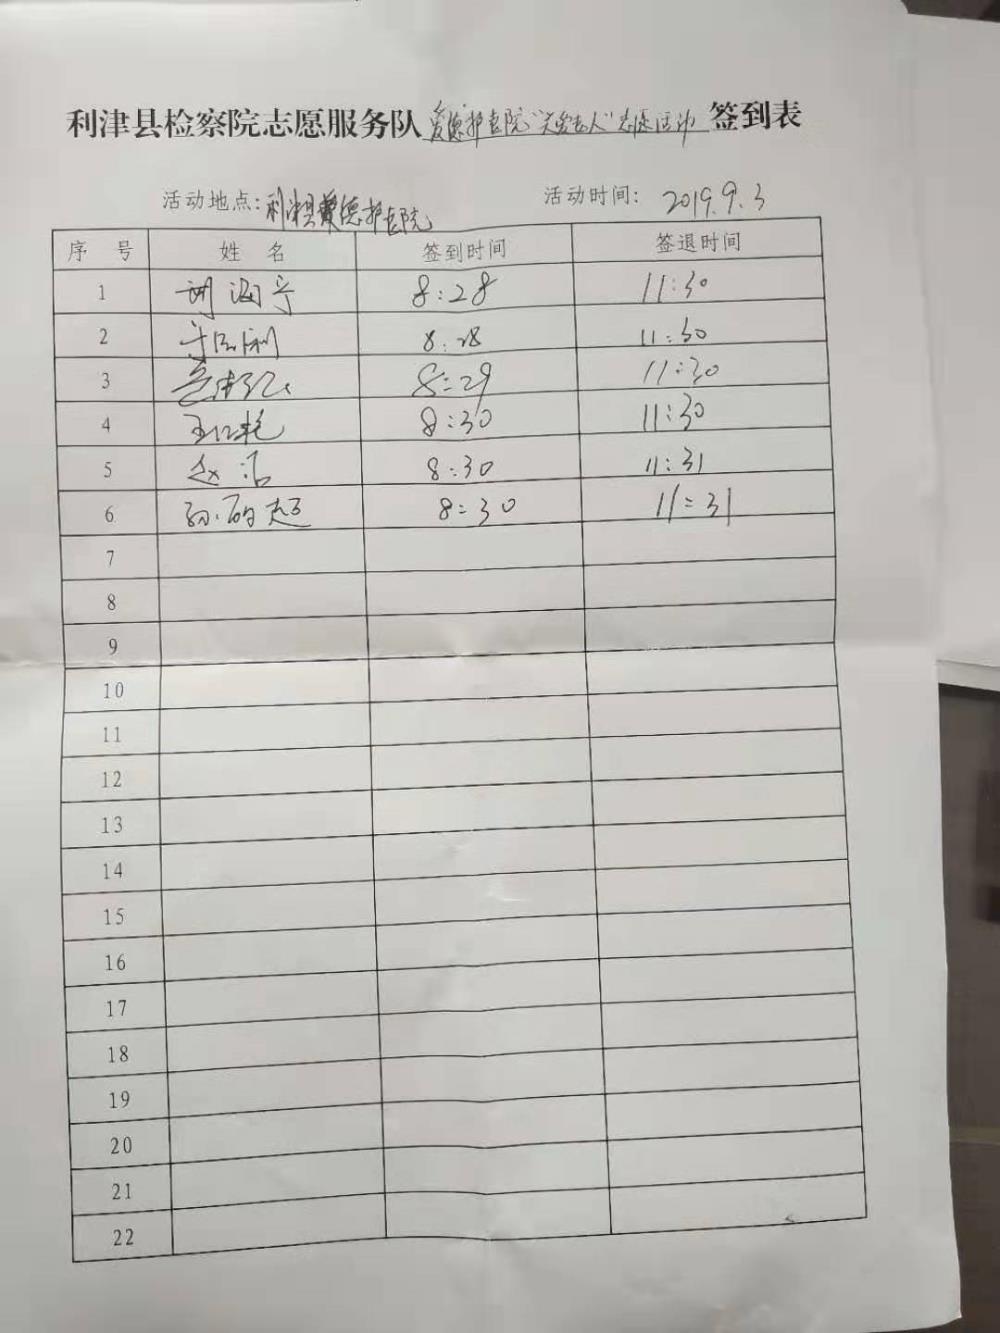 利津县检察院志愿服务队爱德护理院"关爱老人"志愿活动签到表
活动地点:利津县爱德护理院 活动时间: 2019.9.3
序 号 姓 名 签到时间 签退时间
1 8:28 11:30
2 8:28 11:30
3 8:29 11:30
4 8:30 11:30
5 8:30 11:31
6 8:30 11:31
7
8
9
10
11
12
13
14
15
16
17
18
19
20
21
22